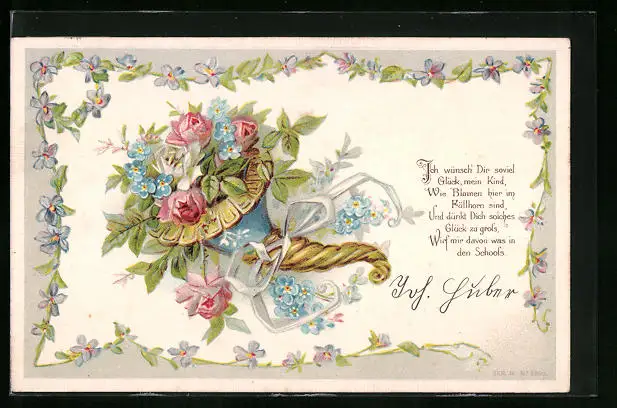 Ich wünsch' Dir soviel
Glück, mein Kind,
Wie Blumen hier im
Füllhorn sind,
Und dünkt Dich solches
Glück zu groß,
Wirf mir davon was in
den Schooß.
Joh. Huber
SER. N°